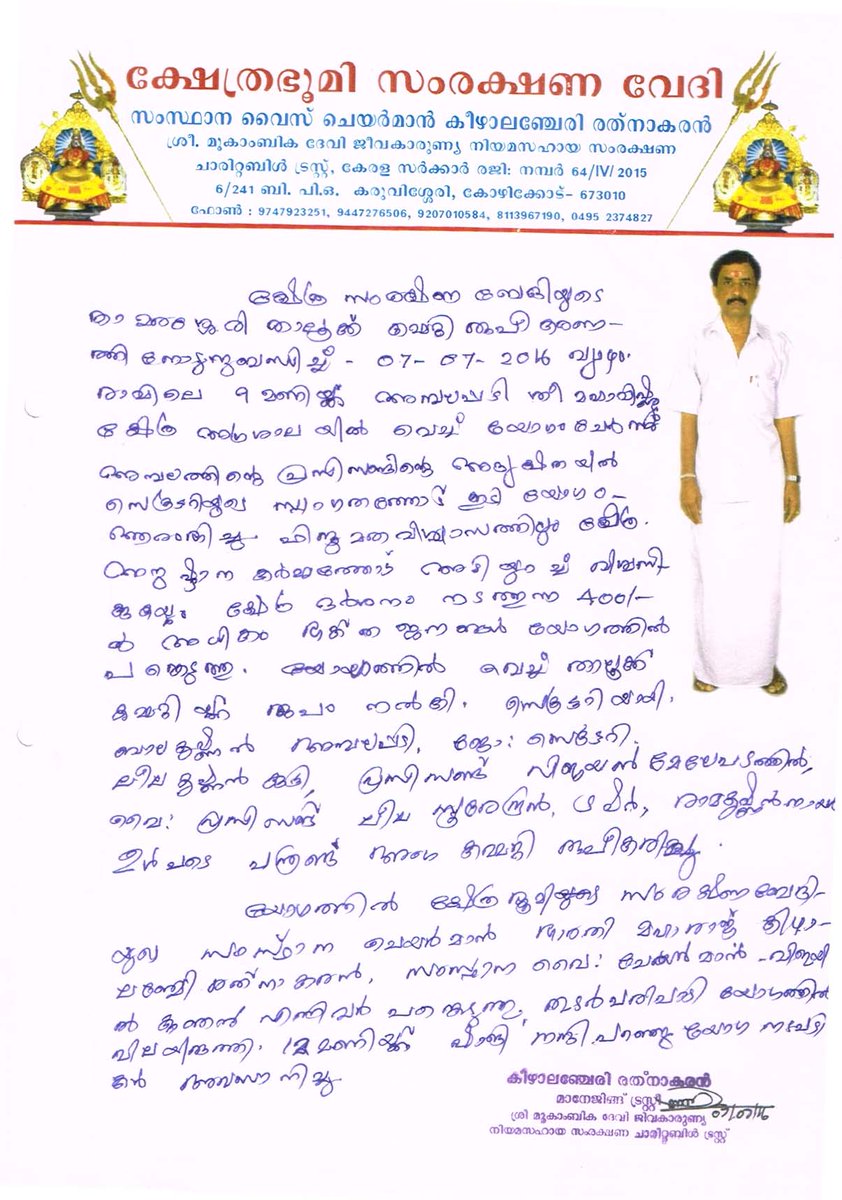 ക്ഷേത്രഭൂമി സംരക്ഷണ വേദി
സംസ്ഥാന വൈസ് ചെയർമാൻ കീഴാലഞ്ചേരി രത്‌നാകരൻ
ശ്രീ. മൂകാംബിക ദേവി ജീവകാരുണ്യ നിയമസഹായ സംരക്ഷണ
ചാരിറ്റബിൾ ട്രസ്റ്റ്, കേരള സർക്കാർ രജി: നമ്പർ 64/IV/ 2015
6/241 ബി. പി.ഒ. കരുവിശ്ശേരി, കോഴിക്കോട്- 673010
ഫോൺ : 9747923251, 9447276506, 9207010584, 8113967190, 0495 2374827
ക്ഷേത്ര സംരക്ഷണ വേദിയുടെ
താമരശ്ശേരി താലൂക്ക് കമ്മറ്റി രൂപീകരണ-
ത്തിനോടനുബന്ധിച്ച് - 07-07-2016 വ്യാഴം.
രാവിലെ 9 മണിയ്ക്ക് അമ്പലപടി ശ്രീ മഹാവിഷ്ണു
ക്ഷേത്ര അഗ്രശാലയിൽ വെച്ച് യോഗം ചേർന്ന്
അമ്പലത്തിന്റെ പ്രസിഡണ്ടിന്റെ അദ്ധ്യക്ഷതയിൽ
സെക്രട്ടറിയുടെ സ്വാഗതത്തോട് കൂടി യോഗം-
ആരംഭിച്ചു ഹിന്ദു മതവിശ്വാസത്തിലും ക്ഷേത്ര.
അനുഷ്ഠാന കർമ്മത്തോട് അടിയുറച്ച് വിശ്വസി-
ക്കുകയും ക്ഷേത്ര ദർശനം നടത്തുന്ന 400/-
ൽ അധികം ഭക്തജനങ്ങൾ യോഗത്തിൽ
പങ്കെടുത്തു. യോഗത്തിൽ വെച്ച് താലൂക്ക്
കമ്മറ്റിയ്ക്ക് രൂപം നൽകി. സെക്രട്ടറിയായി.
ബാലകൃഷ്ണൻ അമ്പലപ്പടി, ജോ: സെക്രട്ടറി.
പ്രസിഡണ്ട് വിജയൻ മേലേപടത്തിൽ,
വൈ: പ്രസിഡണ്ട് ട്രഷറർ, രാമകൃഷ്ണൻ നായർ
ഉൾപടെ പന്ത്രണ്ട് അംഗ കമ്മറ്റി രൂപീകരിച്ചു.
യോഗത്തിൽ ക്ഷേത്രഭൂമിയുടെ സംരക്ഷണവേദി-
യുടെ സംസ്ഥാന ചെയർമാൻ ഭാരതി മഹാരാജ് കീഴാ-
ലഞ്ചേരി രത്‌നാകരൻ, സംസ്ഥാന വൈ: ചെയർമാൻ -
എന്നിവർ പങ്കെടുത്തു, തുടർപരിപാടി യോഗത്തിൽ
വിലയിരുത്തി. 12 മണിയ്ക്ക് നന്ദി പറഞ്ഞു യോഗ നടപടി
കൾ അവസാനിച്ചു
കീഴാലഞ്ചേരി രത്‌നാകരൻ
മാനേജിങ്ങ് ട്രസ്റ്റി
ശ്രീ മൂകാംബിക ദേവി ജീവകാരുണ്യ
നിയമസഹായ സംരക്ഷണ ചാരിറ്റബിൾ ട്രസ്റ്റ്